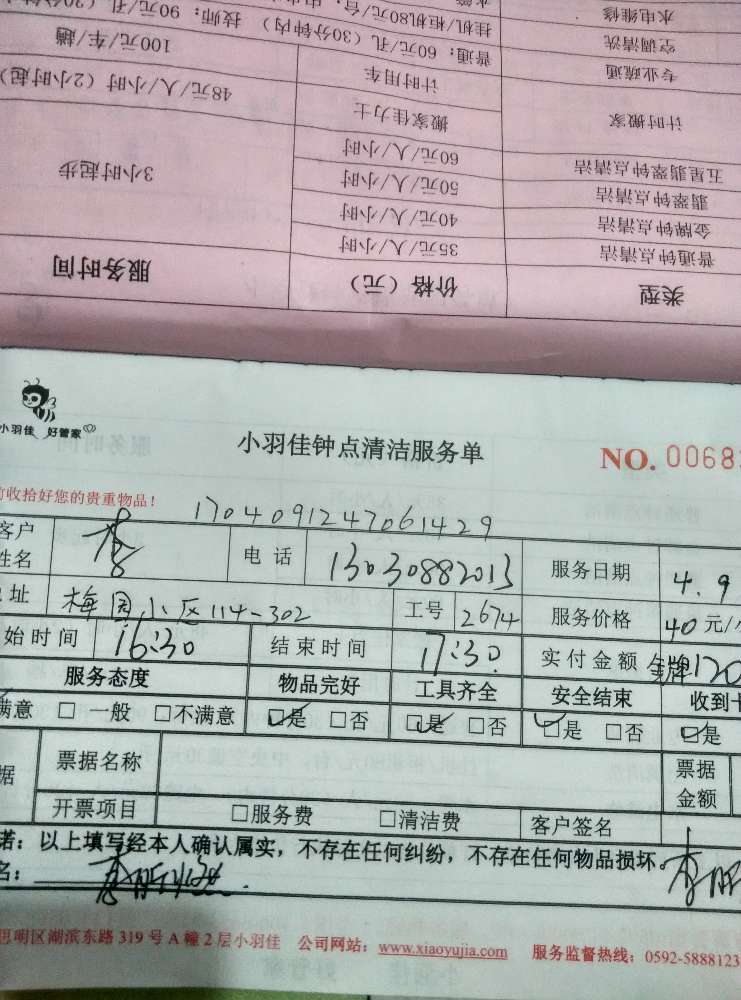 水电维修
空调清洗 挂机/柜机80元/台;
专业疏通 普通: 60元/孔 (30分钟内) 技师: 90元/孔
计时用车 100元/车/趟
计时搬家 搬家佳力士 48元/人/小时 (2小时起)
五星翡翠钟点清洁 60元/人/小时
翡翠钟点清洁 50元/人/小时 3小时起步
金牌钟点清洁 40元/人/小时
普通钟点清洁 35元/人/小时
类型 价格 (元) 服务时间
小羽佳 好管家
小羽佳钟点清洁服务单 NO. 0068
前收拾好您的贵重物品!
1704091247061429
客户姓名 李 电话 13030882013 服务日期 4.9
址 梅园小区114-302 工号 2674 服务价格 40元/
始时间 16:30 结束时间 17:30 实付金额 金牌120
服务态度 物品完好 工具齐全 安全结束 收到
满意 □一般 □不满意 □是 □否 □是 □否 □是 □否 □是
据 票据名称 票据金额
开票项目 □服务费 □清洁费 客户签名
诺: 以上填写经本人确认属实, 不存在任何纠纷, 不存在任何物品损坏。
名:
思明区湖滨东路 319 号 A 幢 2 层小羽佳 公司网站: www.xiaoyujia.com 服务监督热线: 0592-5888123